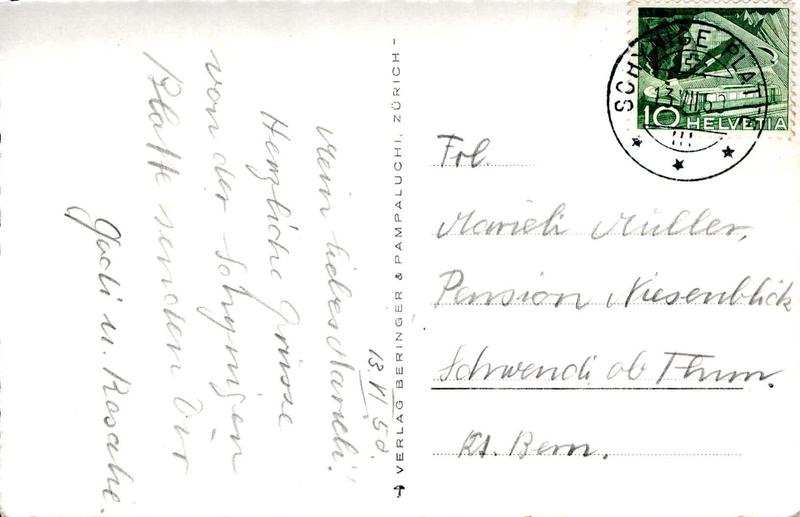 13. VI. 50.
Mein liebes Marieli!
Herzliche Grüsse
von der Schynigen
Platte senden Dir
Godi u. Rosalie.
VERLAG BERINGER & PAMPALUCHI, ZÜRICH
SCHYNIGE PLATTE
10 HELVETIA
Frl.
Marieli Müller,
Pension Niesenblick
Schwendi ob Thun.
Kt. Bern.